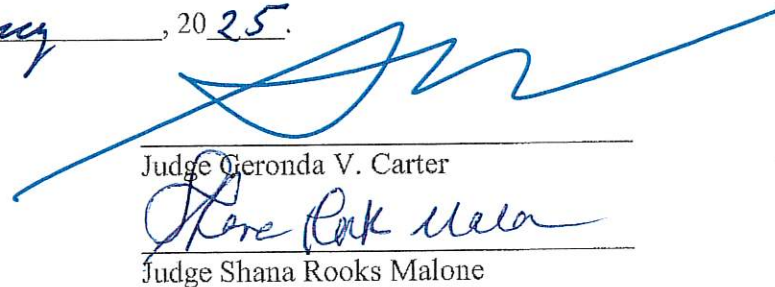 , 20 25.
Judge Geronda V. Carter
Shana Rook Malon
Judge Shana Rooks Malone